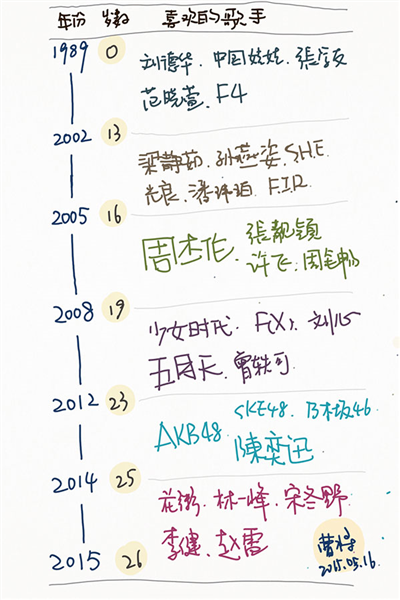 年份 岁数 喜欢的歌手
1989 0
刘德华、中国娃娃、張信哲
范晓萱、F4
2002 13
梁静茹、孙燕姿、S.H.E
光良、潘玮柏、F.I.R
2005 16
周杰伦、張靚穎
许飞、周笔畅
2008 19
少女时代、F(X)、刘心
五月天、曾轶可
2012 23
SKE48、乃木坂46
AKB48
陳奕迅
2014 25
花粥、林一峰、宋冬野
李健、赵雷
2015 26
2015.05.16